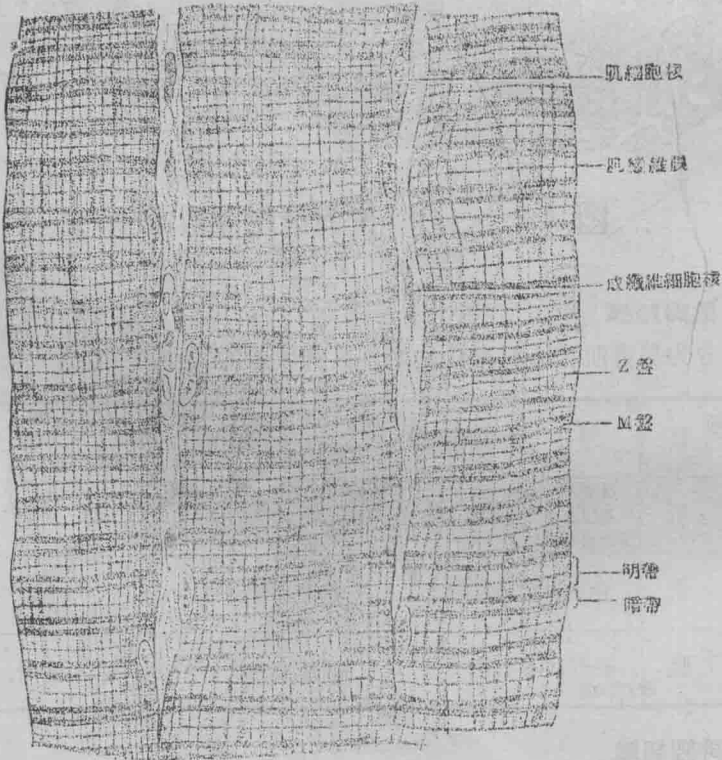 肌細胞核
肌纖維膜
成纖維細胞核
Z盤
M盤
明帶
暗帶